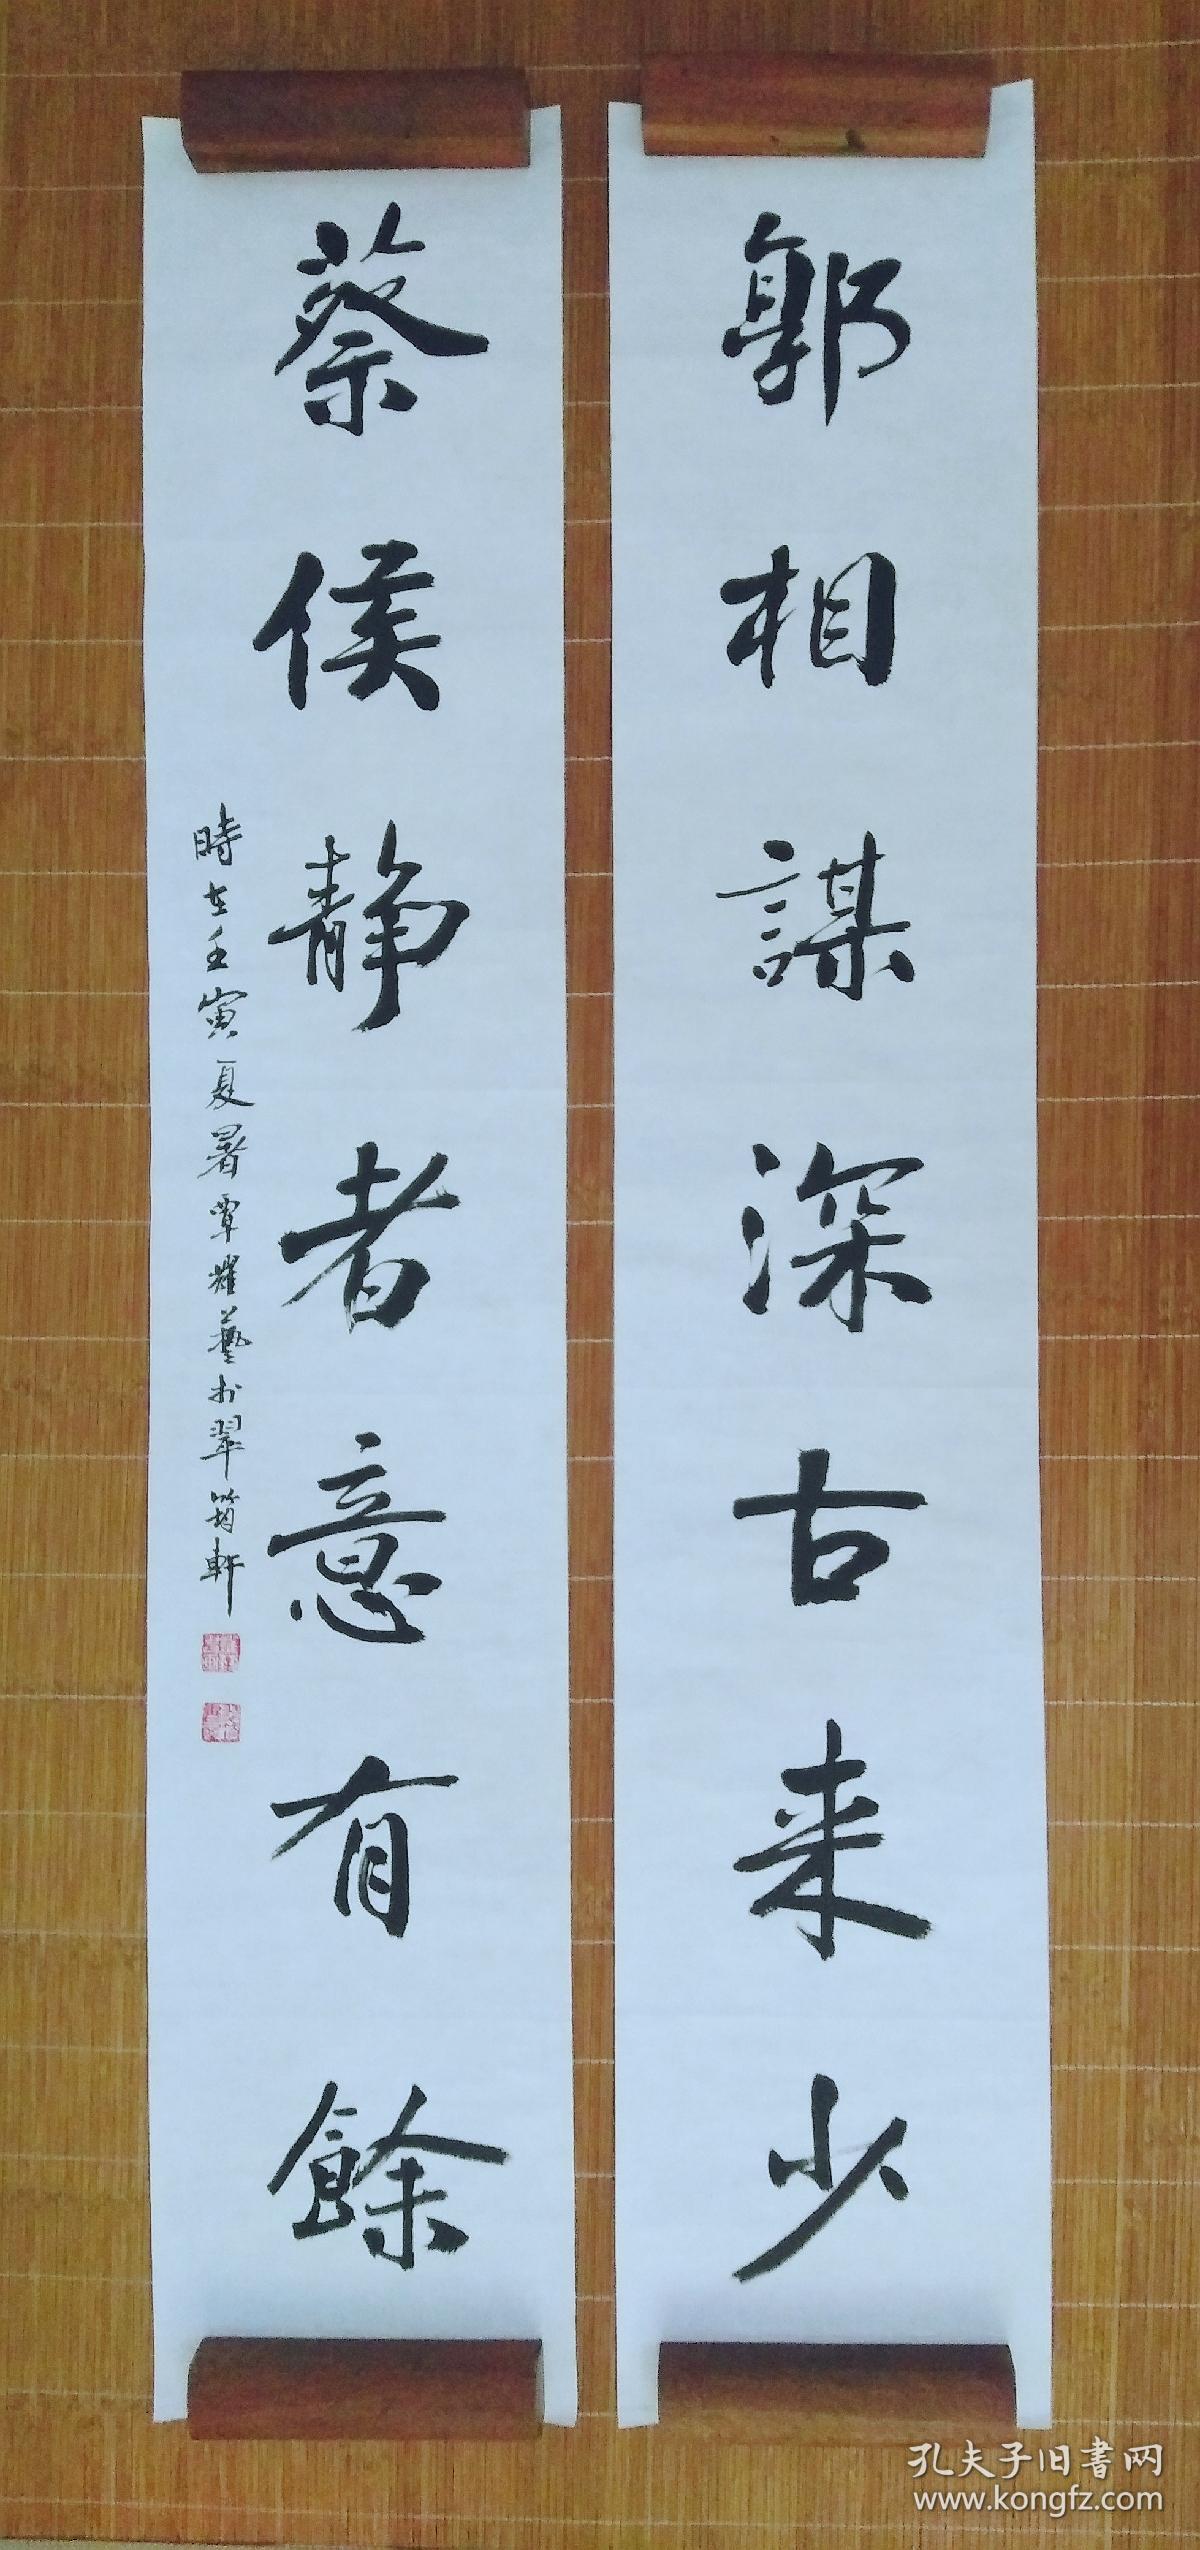 郭相謀深古来少
蔡侯静者意有餘
時在壬寅夏暑覃耀藝於翠筠軒
孔夫子旧書网
www.kongfz.com